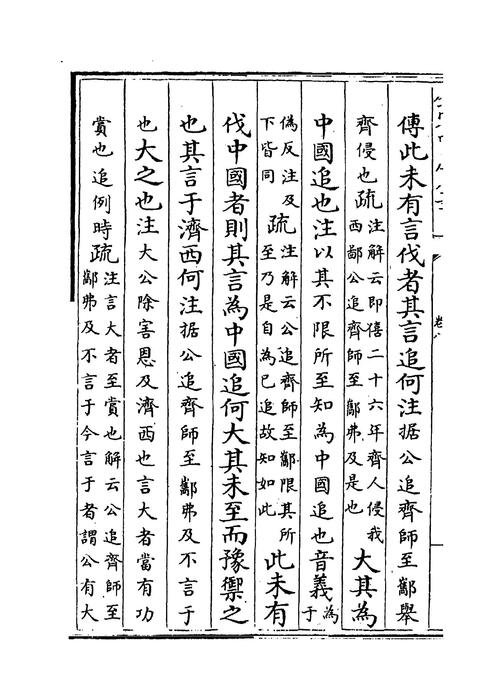 傳此未有言伐者其言追何注据公追齊師至酅舉
齊侵也疏注解云即僖二十六年齊人侵我西鄙公追齊師至酅弗及是也大其為
中國追也注以其不限所至知為中國追也音義為于
偽反注及下皆同疏注解云公追齊師至酅限其所至乃是自為已追故知如此此未有
伐中國者則其言為中國追何大其未至而豫禦之
也其言于濟西何注据公追齊師至酅弗及不言于
也大之也注大公除害恩及濟西也言大者當有功
賞也追例時疏注言大者至賞也解云公追齊師至酅弗及不言于今言于者謂公有大